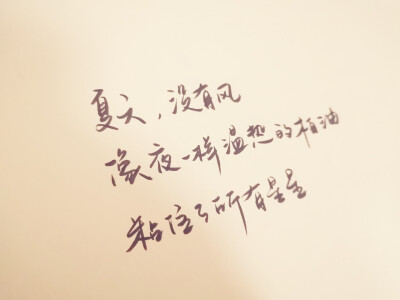 夏天，没有风
像夜一样温热的柏油
粘住了所有星星